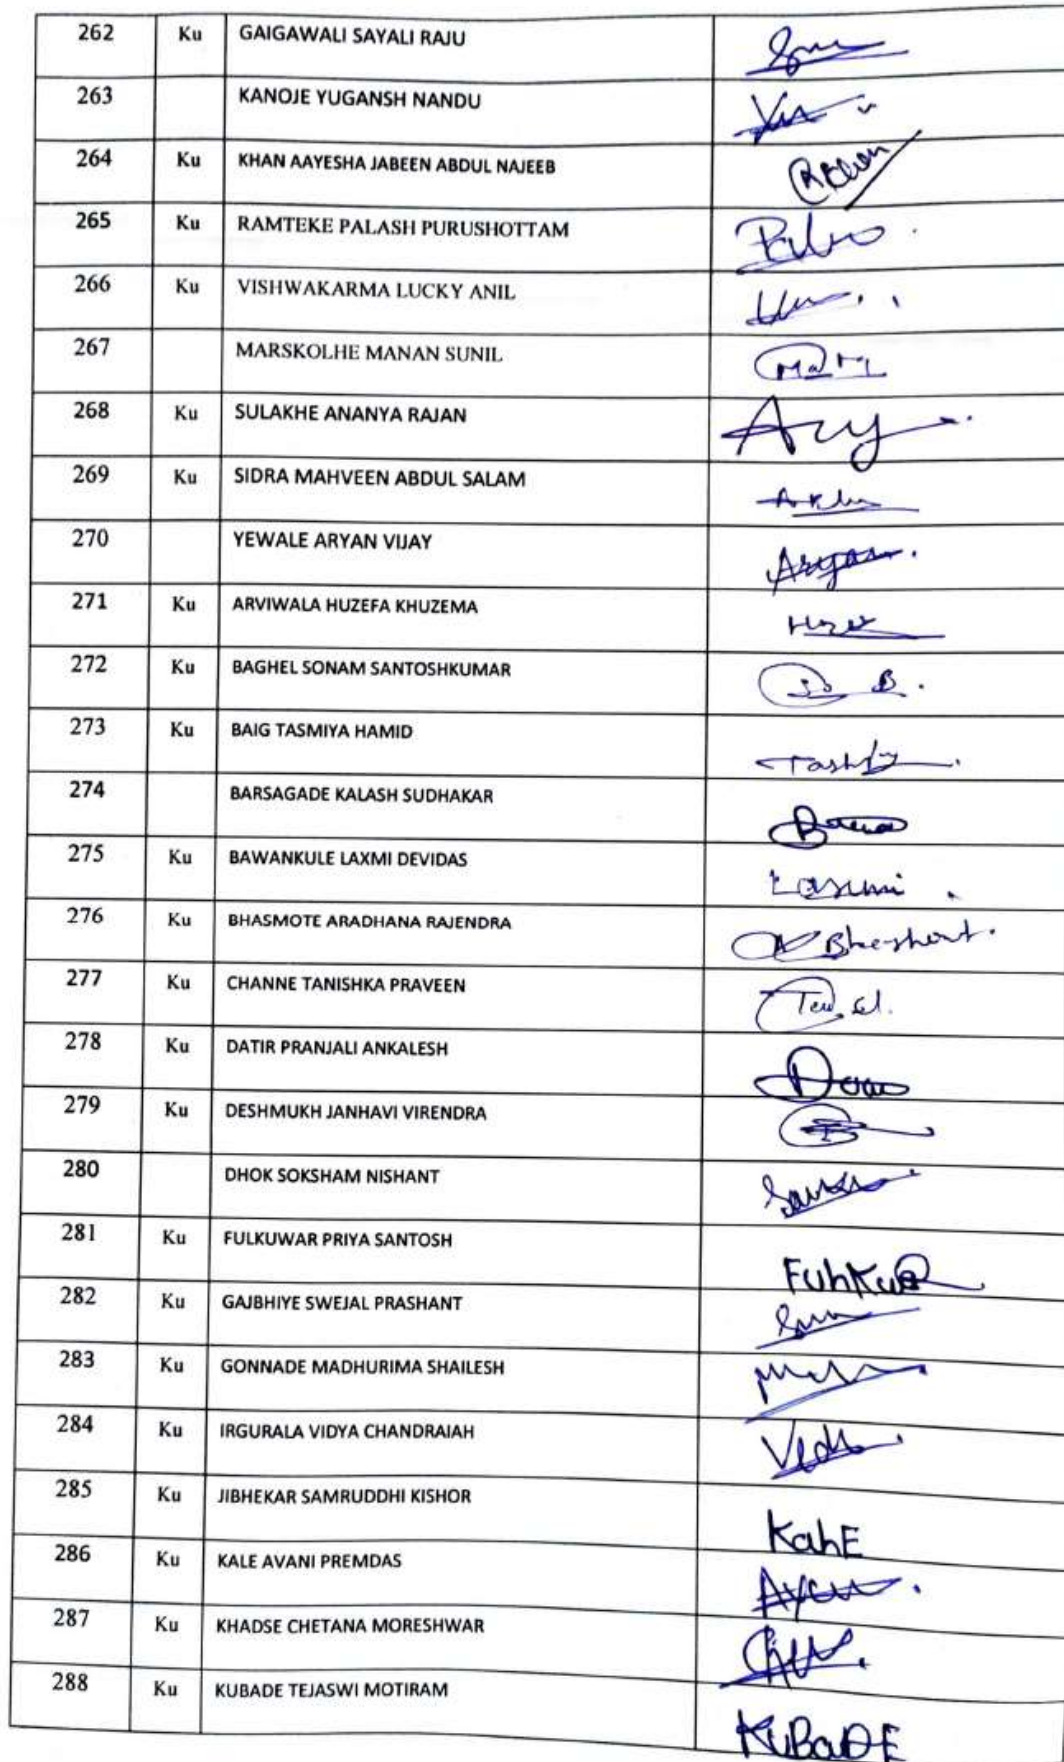 262 Ku GAIGAWALI SAYALI RAJU
263 KANOJE YUGANSH NANDU
264 Ku KHAN AAYESHA JABEEN ABDUL NAJEEB
265 Ku RAMTEKE PALASH PURUSHOTTAM
266 Ku VISHWAKARMA LUCKY ANIL
267 MARSKOLHE MANAN SUNIL
268 Ku SULAKHE ANANYA RAJAN
269 Ku SIDRA MAHVEEN ABDUL SALAM
270 YEWALE ARYAN VIJAY Aryan.
271 Ku ARVIWALA HUZEFA KHUZEMA
272 Ku BAGHEL SONAM SANTOSHKUMAR
273 Ku BAIG TASMIYA HAMID
274 BARSAGADE KALASH SUDHAKAR
275 Ku BAWANKULE LAXMI DEVIDAS
276 Ku BHASMOTE ARADHANA RAJENDRA
277 Ku CHANNE TANISHKA PRAVEEN
278 Ku DATIR PRANJALI ANKALESH
279 Ku DESHMUKH JANHAVI VIRENDRA
280 DHOK SOKSHAM NISHANT
281 Ku FULKUWAR PRIYA SANTOSH
282 Ku GAJBHIYE SWEJAL PRASHANT
283 Ku GONNADE MADHURIMA SHAILESH
284 Ku IRGURALA VIDYA CHANDRAIAH
285 Ku JIBHEKAR SAMRUDDHI KISHOR KahE
286 Ku KALE AVANI PREMDAS
287 Ku KHADSE CHETANA MORESHWAR
288 Ku KUBADE TEJASWI MOTIRAM KuBaDE